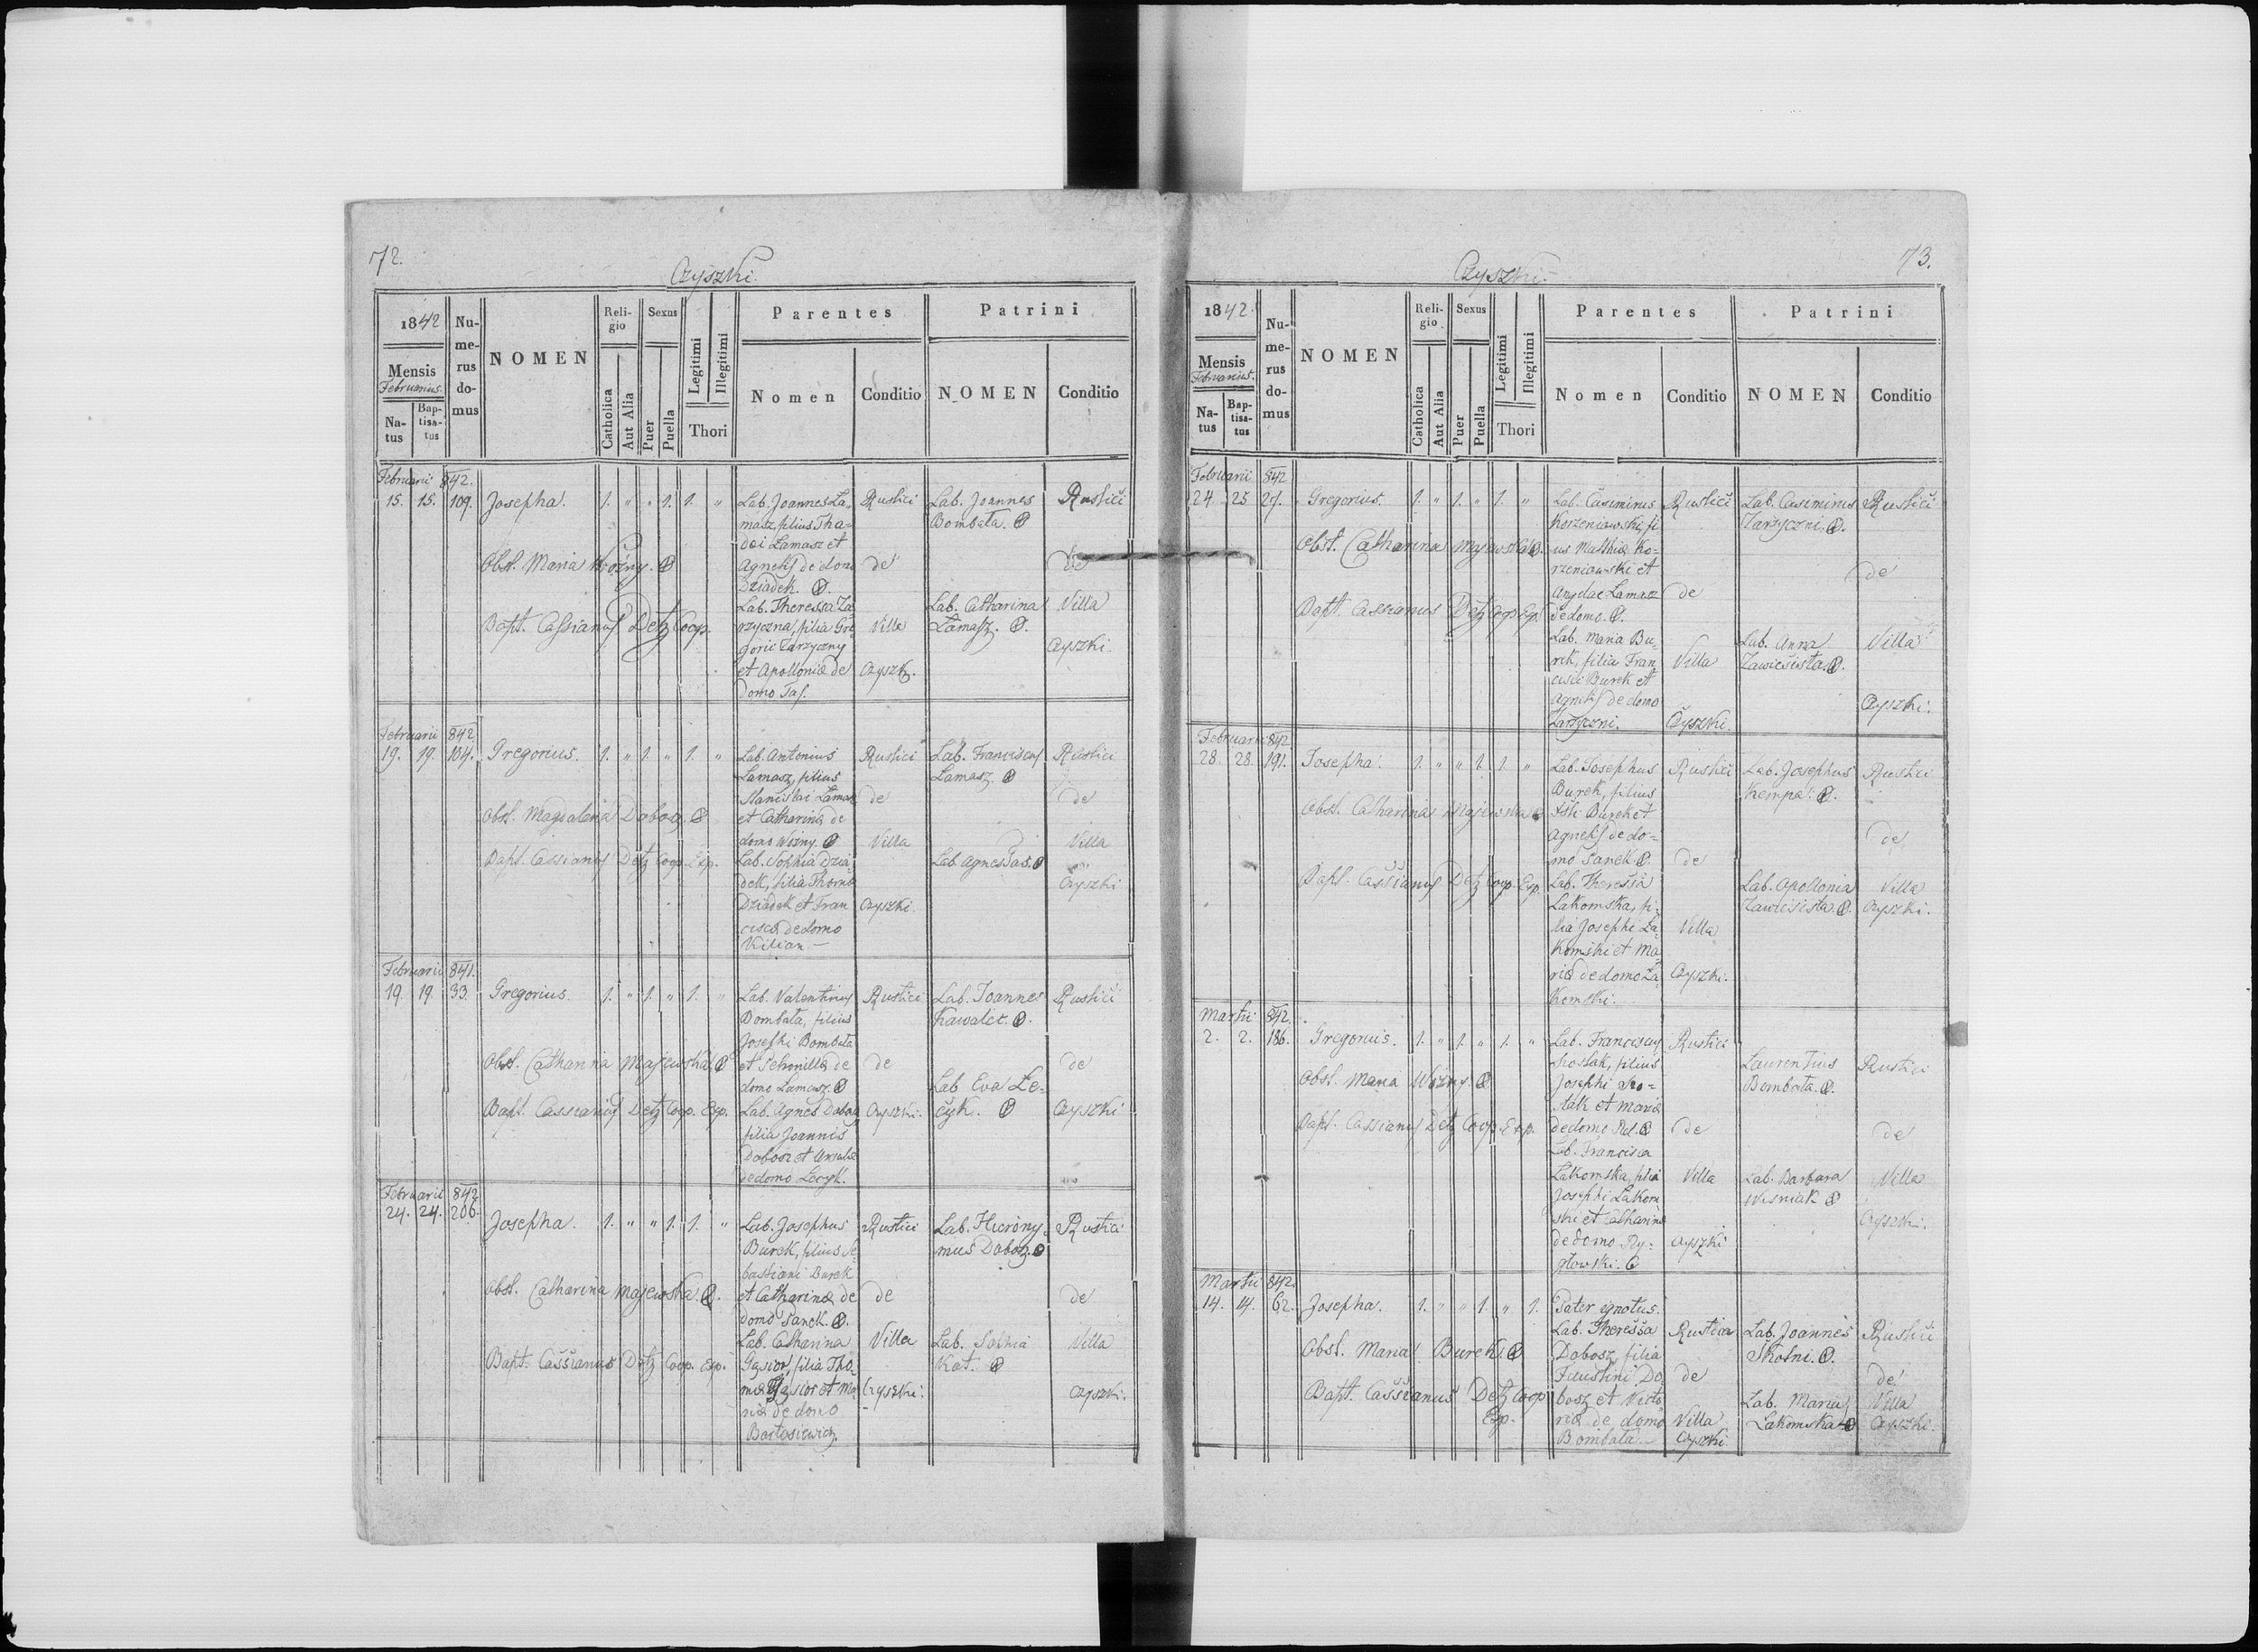 72.
Czyszki.
1842
Mensis
Februarius.
Na-
tus
Bap-
tisa-
tus
Nu-
me-
rus
do-
mus
NOMEN
Reli-
gio
Catholica
Aut Alia
Sexus
Puer
Puella
Legitimi
Illegitimi
Thori
Parentes
Nomen
Conditio
Patrini
NOMEN
Conditio
Februarii 842.
15. 15. 109. Josepha. 1. " " 1. 1. "
Obst. Maria Woźny.
Bapt. Cassianus Detz Coop.
Lab. Joannes La-
masz, filius Tha-
dei Lamasz et
Agnetis de domo
Dziadek.
Lab. Theressa Za
rzyczna, filia Gre
gorii Zarzyczny
et Apollonia de
domo Tas.
Rustici
de
Villa
Czyszki.
Lab. Joannes
Bombata.
Lab. Catharina
Lamasz.
Rustici
de
Villa
Czyszki.
Februarii 842.
19. 19. 104. Gregorius. 1. " 1. " 1. "
Obst. Magdalena Dobosz.
Bapt. Cassianus Detz Coop. Exp.
Lab. Antonius
Lamasz, filius
Stanislai Lamasz
et Catharina de
domo Woźny.
Lab. Sophia Dzia
dek, filia Thoma
Dziadek et Fran
cisca de domo
Kilian.
Rustici
de
Villa
Czyszki.
Lab. Franciscus
Lamasz
Lab. Agnes Tas.
Rustici
de
Villa
Czyszki
Februarii 841.
19. 19. 33. Gregorius. 1. " 1. " 1. "
Obst. Catharina Majewska.
Bapt. Cassianus Detz Coop. Exp.
Lab. Valentinus
Bombata, filius
Josephi Bombata
et Petronilla de
domo Lamasz.
Lab. Agnes Dobosz
filia Joannis
Dobosz et Ursula
de domo Leczyk.
Rustici
de
Czyszki.
Lab. Joannes
Kawalec.
Lab Eva Le-
czyk.
Rustici
de
Czyszki
Februarii 842
24. 24. 206. Josepha. 1. " " 1. 1. "
Obst. Catharina Majewska.
Bapt. Cassianus Detz Coop. Exp.
Lab. Josephus
Burek, filius Se
bastiani Burek
et Catharina de
domo Sanek.
Lab. Catharina
Gąsior, filia Tho-
ma Gąsior et Ma
ria de domo
Bartosiewicz.
Rustici
de
Villa
Czyszki.
Lab. Hierony
mus Dobosz.
Lab. Sophia
Kot.
Rustici
de
Villa
Czyszki.
73.
Czyszki.
1842.
Mensis
Februarius.
Na-
tus
Bap-
tisa-
tus
Nu-
me-
rus
do-
mus
NOMEN
Reli-
gio
Catholica
Aut Alia
Sexus
Puer
Puella
Legitimi
Illegitimi
Thori
Parentes
Nomen
Conditio
Patrini
NOMEN
Conditio
Februarii 842
24. 25. 27. Gregorius. 1. " 1. " 1. "
Obst. Catharina Majewska.
Bapt. Cassianus Detz Coop Exp.
Lab. Casimirus
Korzeniowski, fi
us Matthia Ko-
rzeniowski et
Lamasz
de domo.
Lab. Maria Bu-
rek, filia Fran
cisci Burek et
Agnetis de domo
Zarzyczni.
Rustici
de
Villa
Czyszki.
Lab. Casimirus
Zarzyczni.
Lab. Anna
Zawiesista.
Rustici
de
Villa
Czyszki.
Februarii 842
28. 28. 191. Josepha. 1. " " 1. 1. "
Obst. Catharina Majewska
Bapt. Cassianus Detz Coop. Exp.
Lab. Josephus
Burek, filius
Burek et
Agnetis de do-
mo Sanek.
Lab. Theressa
Lakomska, fi-
lia Josephi La-
komski et Ma
ria de domo La-
komski.
Rustici
de
Villa
Czyszki.
Lab. Josephus
Kempa.
Lab. Apollonia
Zawiesista.
Rustici
de
Villa
Czyszki.
Martii 842.
2. 2. 186. Gregorius. 1. " 1. " 1. "
Obst. Maria Woźny.
Bapt. Cassianus Detz Coop. Exp.
Lab. Franciscus
filius
Josephi
et Maria
de domo
Lab. Francisca
Lakomska, filia
Josephi Lakom
ski et Catharina
de domo Ry-
głowski.
Rustici
de
Villa
Czyszki
Laurentius
Bombata.
Lab. Barbara
Wisniak
Rustici
de
Villa
Czyszki.
Martii 842.
14. 14. 62. Josepha. 1. " " 1. " 1.
Obst. Maria Burek.
Bapt. Cassianus Detz Coop
Exp.
Pater ignotus.
Lab. Theressa
Dobosz filia
Faustini Do-
bosz et Victo
ria de domo
Bombata
Rustica
de
Villa
Czyszki.
Lab. Joannes
Skotni.
Lab. Maria
Lakomska
Rustici
de
Villa
Czyszki.